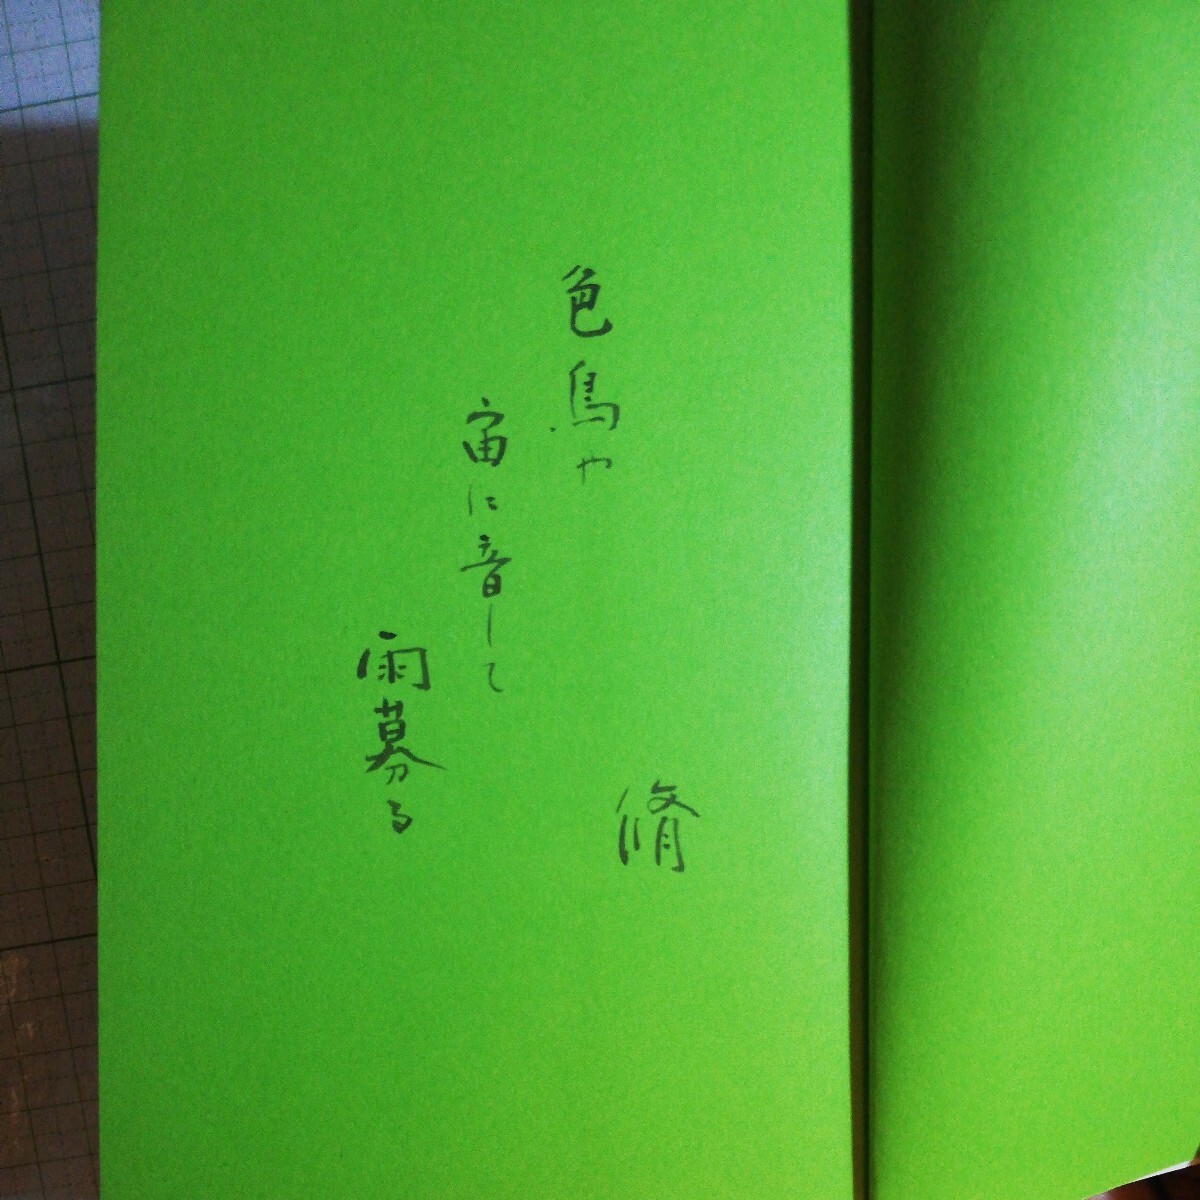 色鳥や
宙に音して
雨募る
脩